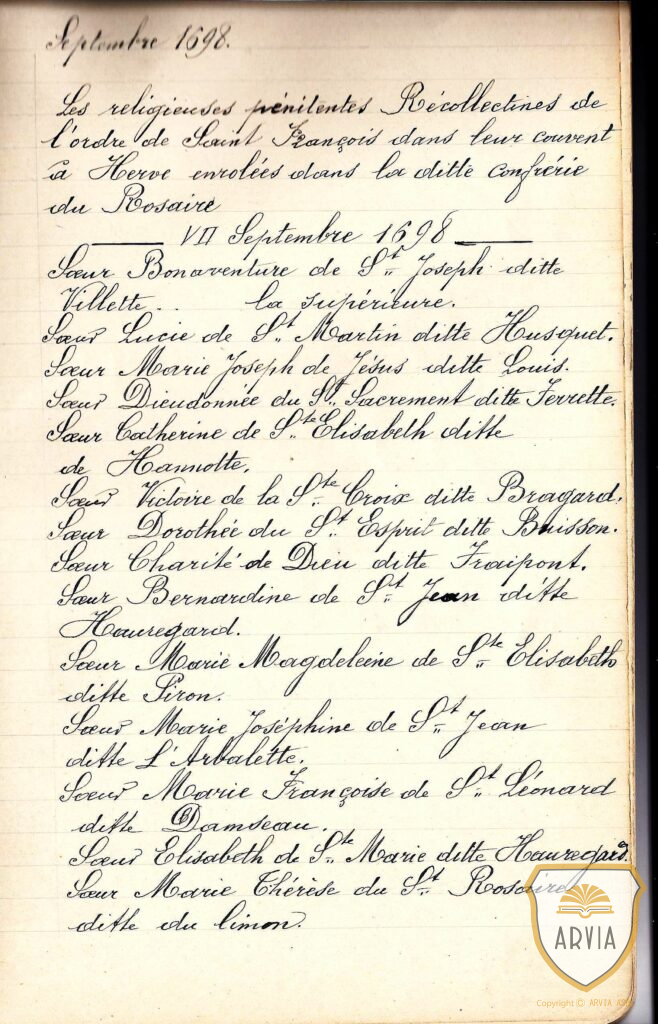 Septembre 1698.
Les religieuses pénitentes Récollectines de
l'ordre de Saint François dans leur couvent
à Herve enrolées dans la ditte confrérie
du Rosaire
VII Septembre 1698
Sœur Bonaventure de St Joseph ditte
Villette.. la supérieure.
Sœur Lucie de St Martin ditte Husquet.
Sœur Marie Joseph de Jésus ditte Louis.
Sœur Dieudonnée du St Sacrement ditte Ferrette.
Sœur Catherine de Ste Elisabeth ditte
de Hannotte.
Sœur Victoire de la Ste Croix ditte Bragard.
Sœur Dorothée du St Esprit ditte Buisson.
Sœur Charité de Dieu ditte Fraipont.
Sœur Bernardine de St Jean ditte
Hauregard.
Sœur Marie Magdeleine de Ste Elisabeth
ditte Piron.
Sœur Marie Joséphine de St Jean
ditte L'Arbalette.
Sœur Marie Françoise de St Léonard
ditte Damseau.
Sœur Elisabeth de Ste Marie ditte Hauregard.
Sœur Marie Thérèse du St Rosaire
ditte du Limon.
ARVIA
Copyright © ARVIA